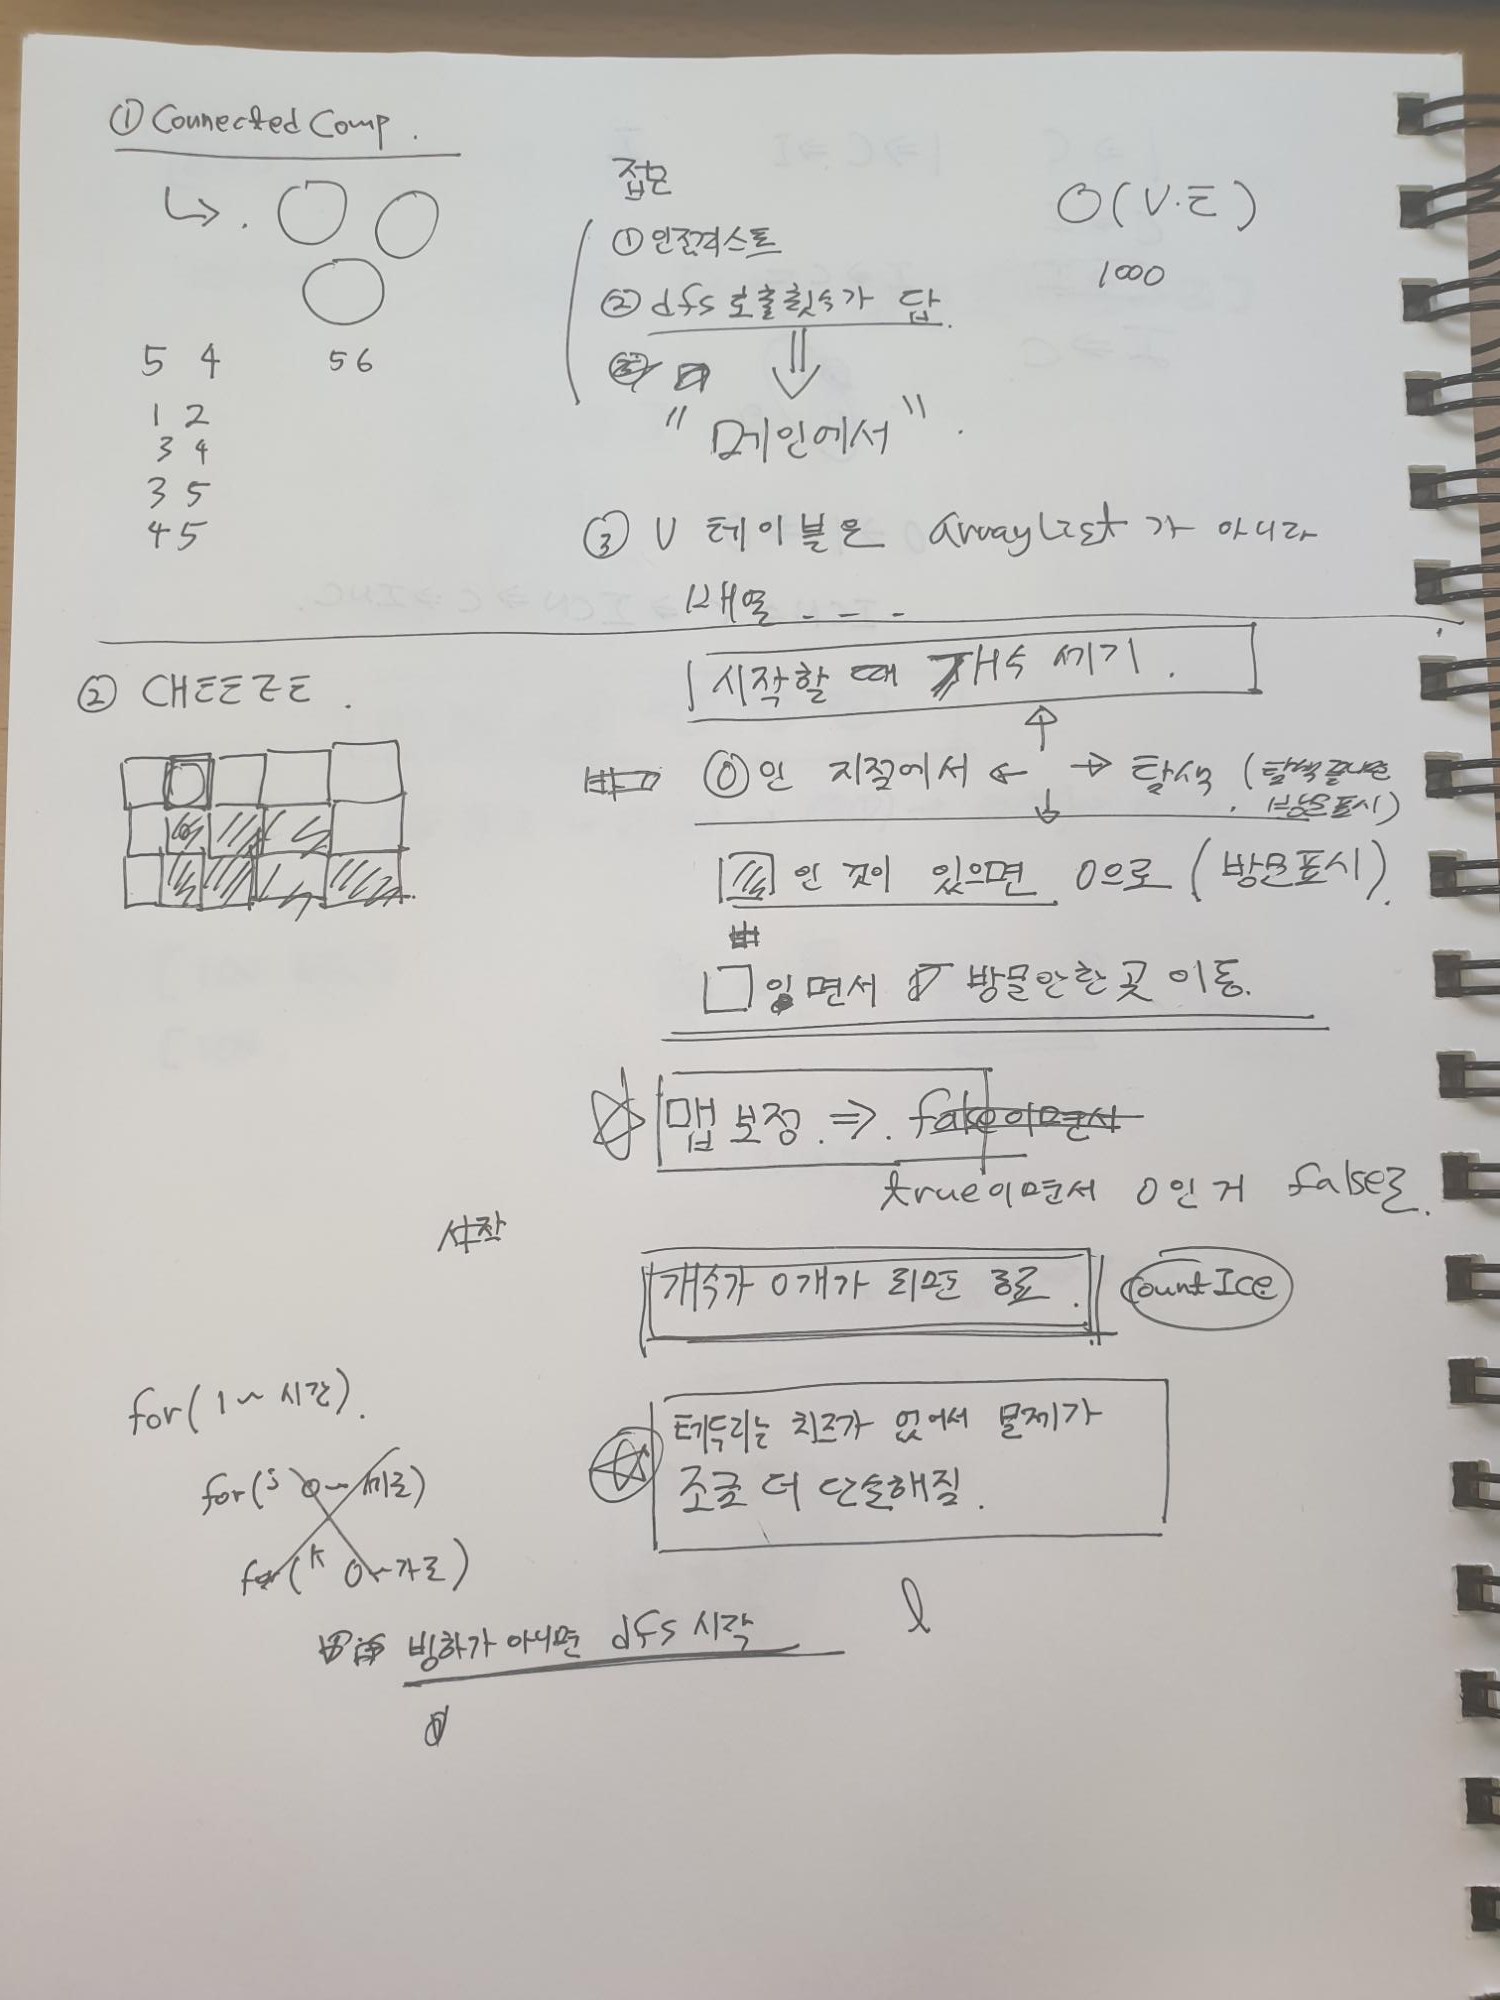 ① Connected Comp.
5 4
5 6
1 2
3 4
3 5
4 5
접근
① 인접리스트
② dfs 호출횟수가 답.
"메인에서".
O(V·E)
1000
③ V 테이블은 arrayList가 아니라
배열 - - -
② CHEEZE.
시작할 때 개수 세기.
0인 지점에서 ← ↑ ↓ → 탐색 (탐색 끝나면
방문표시)
인 것이 있으면 0으로 (방문표시).
이면서 방문안한 곳 이동.
맵 보정. ⇒. false이면서
true이면서 0인 거 false로.
시작
개수가 0개가 되면 종료.
countIce
for(1~시간).
for(j 0~세로)
for(k 0~가로)
빙하가 아니면 dfs 시작
테두리는 치즈가 없어서 문제가
조금 더 단순해짐.